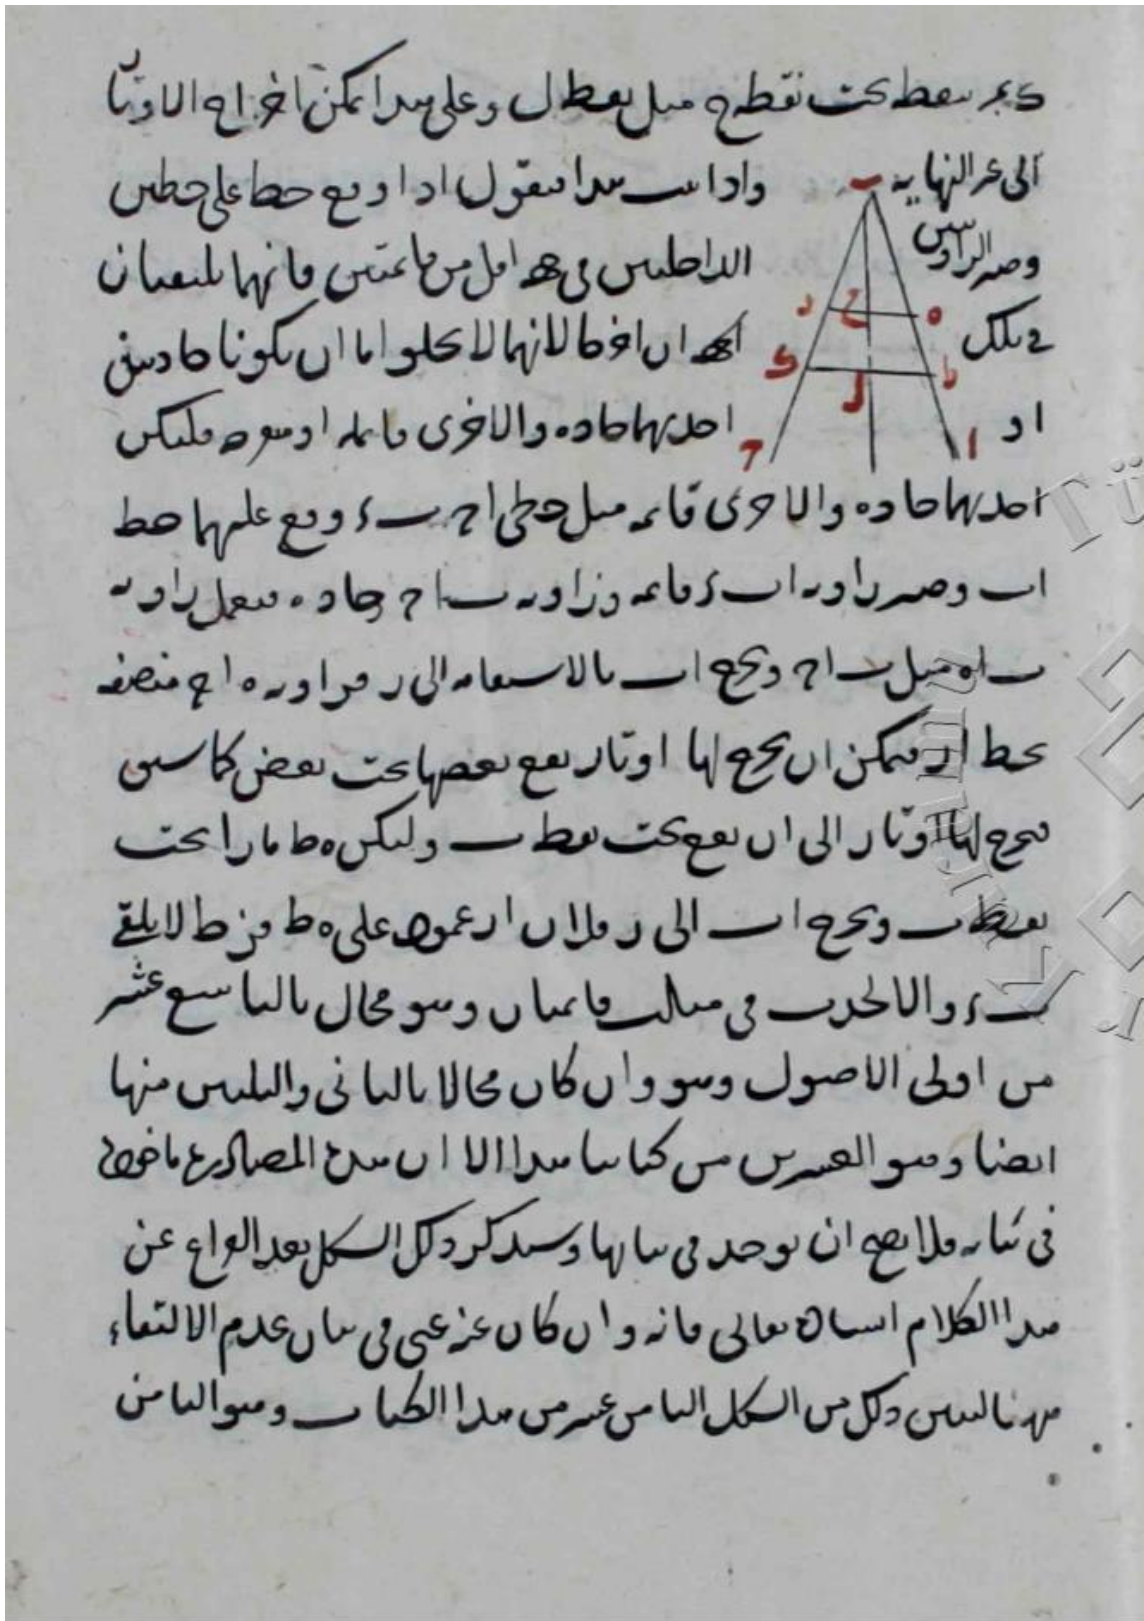 نقطة تحت نقطة ح مثل نقطة ل وعلى هذا يمكن اخراج الاوتار
الى غير النهاية واذا ثبت هذا فنقول اذا وقع خط على خطين
وصير الزاويتين الداخلتين في جهة اقل من قائمتين فانهما يلتقيان
في تلك الجهة ان اخرجا لانهما لا يخلو اما ان يكونا حادتين
او احديهما حادة والاخرى قائمة او منفرجة فليكن
احديهما حادة والاخرى قائمة مثل خطي ا ح ب ء وقع عليهما خط
ا ب وصير زاوية ا ب ء قائمة وزاوية ب ا ح حادة فنعمل زاوية
ب ا ه مثل ب ا ح ونخرج ا ب بالاستقامة الى ر فزاوية ه ا ح منصفة
بخط ا ر فيمكن ان يخرج لها اوتار يقع بعضها تحت بعض كما سبق
فنخرج لها اوتار الى ان يقع تحت نقطة ب وليكن ه ط مارا تحت
نقطة ب ونخرج ا ب الى ر فلان ا ر عمود على ه ط فـ ر ط لا يلقى
ب ء والا لحدث في مثلث قائمتان وهو محال بالتاسع عشر
من اولى الاصول وهو وان كان محالا بالثاني والثلثين منها
ايضا وهو العشرين من كتابنا هذا الا ان هذه المصادرة ماخوذة
في بيانه فلا يصح ان يوخذ في بيانها وسنذكر ذلك الشكل بعد الفراغ عن
هذا الكلام انشاء الله تعالى فانه وان كان غير غنى في بيان عدم الالتقاء
ذلك من الشكل الثامن عشر من هذا الكتاب وهو الثامن
ب
ح
ه
ط
ل
ا
ح